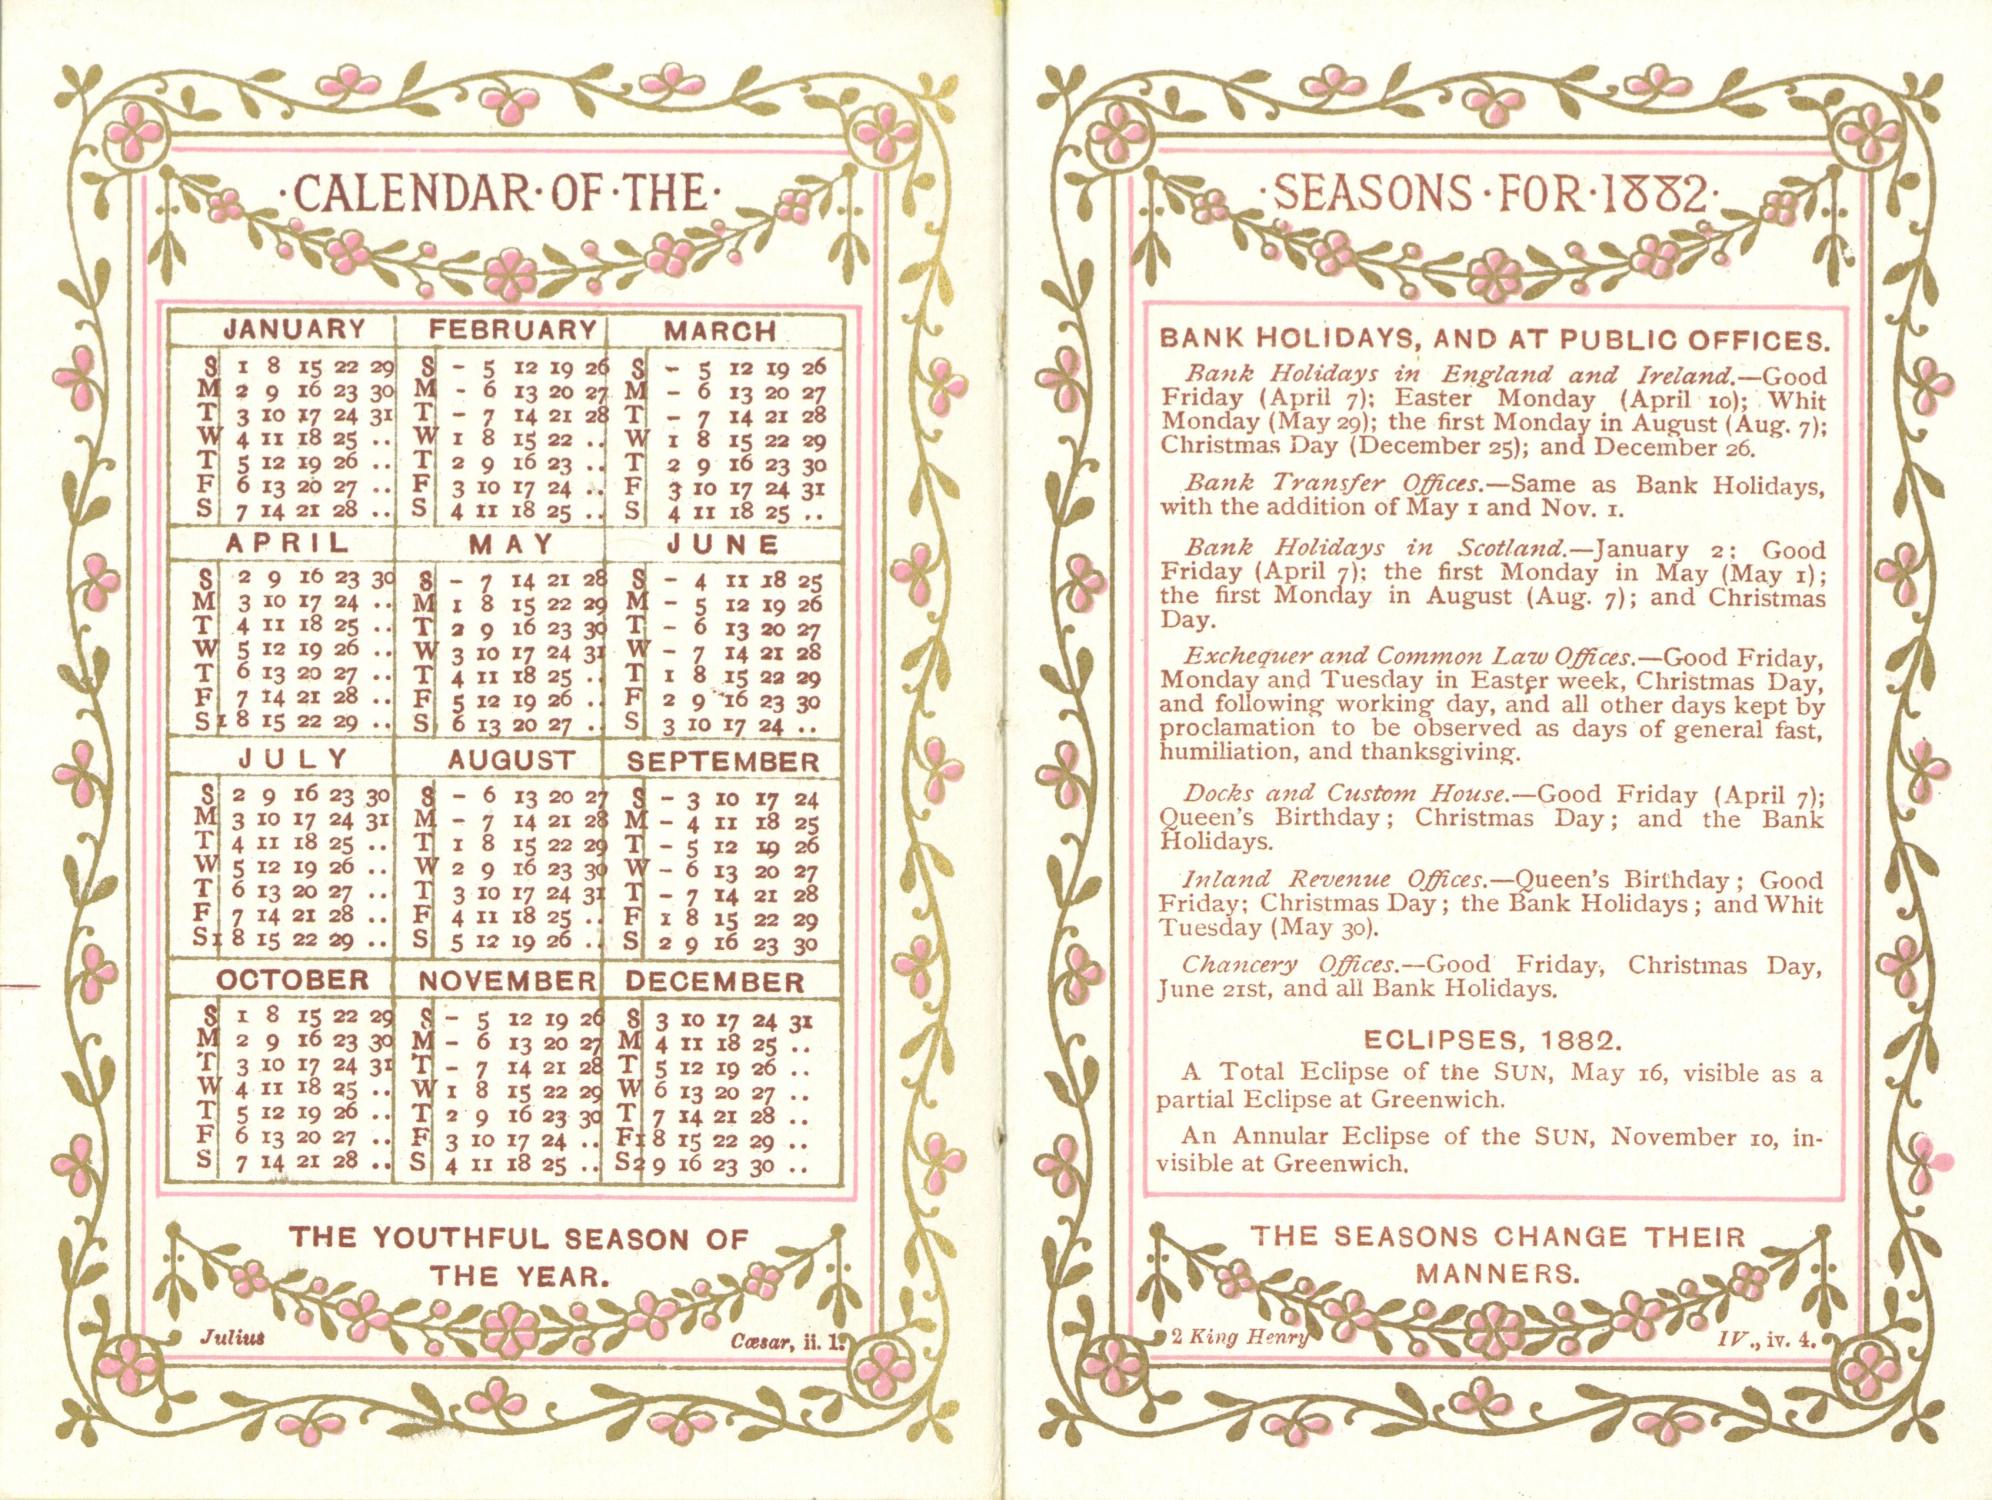 ·CALENDAR·OF·THE·
JANUARY FEBRUARY MARCH
S 1 8 15 22 29 S - 5 12 19 26 S - 5 12 19 26
M 2 9 16 23 30 M - 6 13 20 27 M - 6 13 20 27
T 3 10 17 24 31 T - 7 14 21 28 T - 7 14 21 28
W 4 11 18 25 .. W 1 8 15 22 .. W 1 8 15 22 29
T 5 12 19 26 .. T 2 9 16 23 .. T 2 9 16 23 30
F 6 13 20 27 .. F 3 10 17 24 .. F 3 10 17 24 31
S 7 14 21 28 .. S 4 11 18 25 .. S 4 11 18 25 ..
APRIL MAY JUNE
S 2 9 16 23 30 S - 7 14 21 28 S - 4 11 18 25
M 3 10 17 24 .. M 1 8 15 22 29 M - 5 12 19 26
T 4 11 18 25 .. T 2 9 16 23 30 T - 6 13 20 27
W 5 12 19 26 .. W 3 10 17 24 31 W - 7 14 21 28
T 6 13 20 27 .. T 4 11 18 25 .. T 1 8 15 22 29
F 7 14 21 28 .. F 5 12 19 26 .. F 2 9 16 23 30
S 1 8 15 22 29 .. S 6 13 20 27 .. S 3 10 17 24 ..
JULY AUGUST SEPTEMBER
S 2 9 16 23 30 S - 6 13 20 27 S - 3 10 17 24
M 3 10 17 24 31 M - 7 14 21 28 M - 4 11 18 25
T 4 11 18 25 .. T 1 8 15 22 29 T - 5 12 19 26
W 5 12 19 26 .. W 2 9 16 23 30 W - 6 13 20 27
T 6 13 20 27 .. T 3 10 17 24 31 T - 7 14 21 28
F 7 14 21 28 .. F 4 11 18 25 .. F 1 8 15 22 29
S 1 8 15 22 29 .. S 5 12 19 26 .. S 2 9 16 23 30
OCTOBER NOVEMBER DECEMBER
S 1 8 15 22 29 S - 5 12 19 26 S 3 10 17 24 31
M 2 9 16 23 30 M - 6 13 20 27 M 4 11 18 25 ..
T 3 10 17 24 31 T - 7 14 21 28 T 5 12 19 26 ..
W 4 11 18 25 .. W 1 8 15 22 29 W 6 13 20 27 ..
T 5 12 19 26 .. T 2 9 16 23 30 T 7 14 21 28 ..
F 6 13 20 27 .. F 3 10 17 24 .. F 1 8 15 22 29 ..
S 7 14 21 28 .. S 4 11 18 25 .. S 2 9 16 23 30 ..
THE YOUTHFUL SEASON OF
THE YEAR.
Julius Cæsar, ii. 1.
·SEASONS·FOR·1882·
BANK HOLIDAYS, AND AT PUBLIC OFFICES.
Bank Holidays in England and Ireland.—Good
Friday (April 7); Easter Monday (April 10); Whit
Monday (May 29); the first Monday in August (Aug. 7);
Christmas Day (December 25); and December 26.
Bank Transfer Offices.—Same as Bank Holidays,
with the addition of May 1 and Nov. 1.
Bank Holidays in Scotland.—January 2; Good
Friday (April 7); the first Monday in May (May 1);
the first Monday in August (Aug. 7); and Christmas
Day.
Exchequer and Common Law Offices.—Good Friday,
Monday and Tuesday in Easter week, Christmas Day,
and following working day, and all other days kept by
proclamation to be observed as days of general fast,
humiliation, and thanksgiving.
Docks and Custom House.—Good Friday (April 7);
Queen's Birthday; Christmas Day; and the Bank
Holidays.
Inland Revenue Offices.—Queen's Birthday; Good
Friday; Christmas Day; the Bank Holidays; and Whit
Tuesday (May 30).
Chancery Offices.—Good Friday, Christmas Day,
June 21st, and all Bank Holidays.
ECLIPSES, 1882.
A Total Eclipse of the SUN, May 16, visible as a
partial Eclipse at Greenwich.
An Annular Eclipse of the SUN, November 10, in-
visible at Greenwich.
THE SEASONS CHANGE THEIR
MANNERS.
2 King Henry IV., iv. 4.